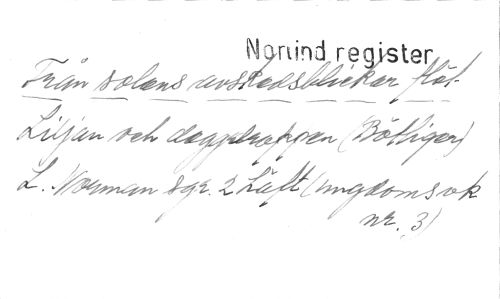 Norlind register
Från solens avskedsblickar flöt
Liljan och daggdroppen (Böttiger)
L. Norman sgr. 2 häft (ungdomsvk
nr. 3)